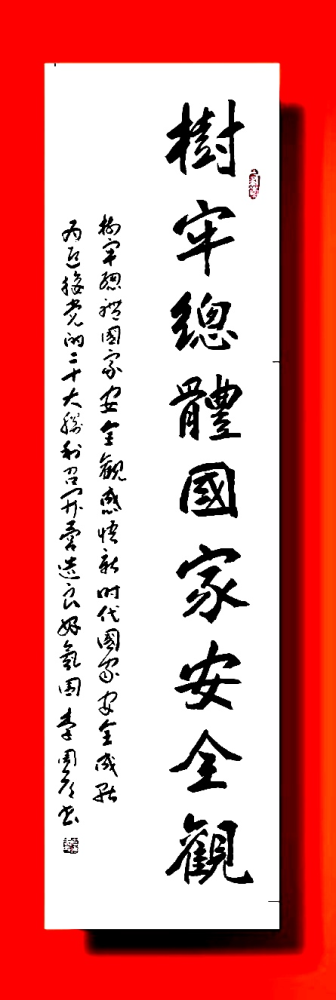 樹牢總體國家安全觀
樹牢總體國家安全觀感悟新时代國家安全成就
为迎接党的二十大勝利召开營造良好氣囲 李国彦书